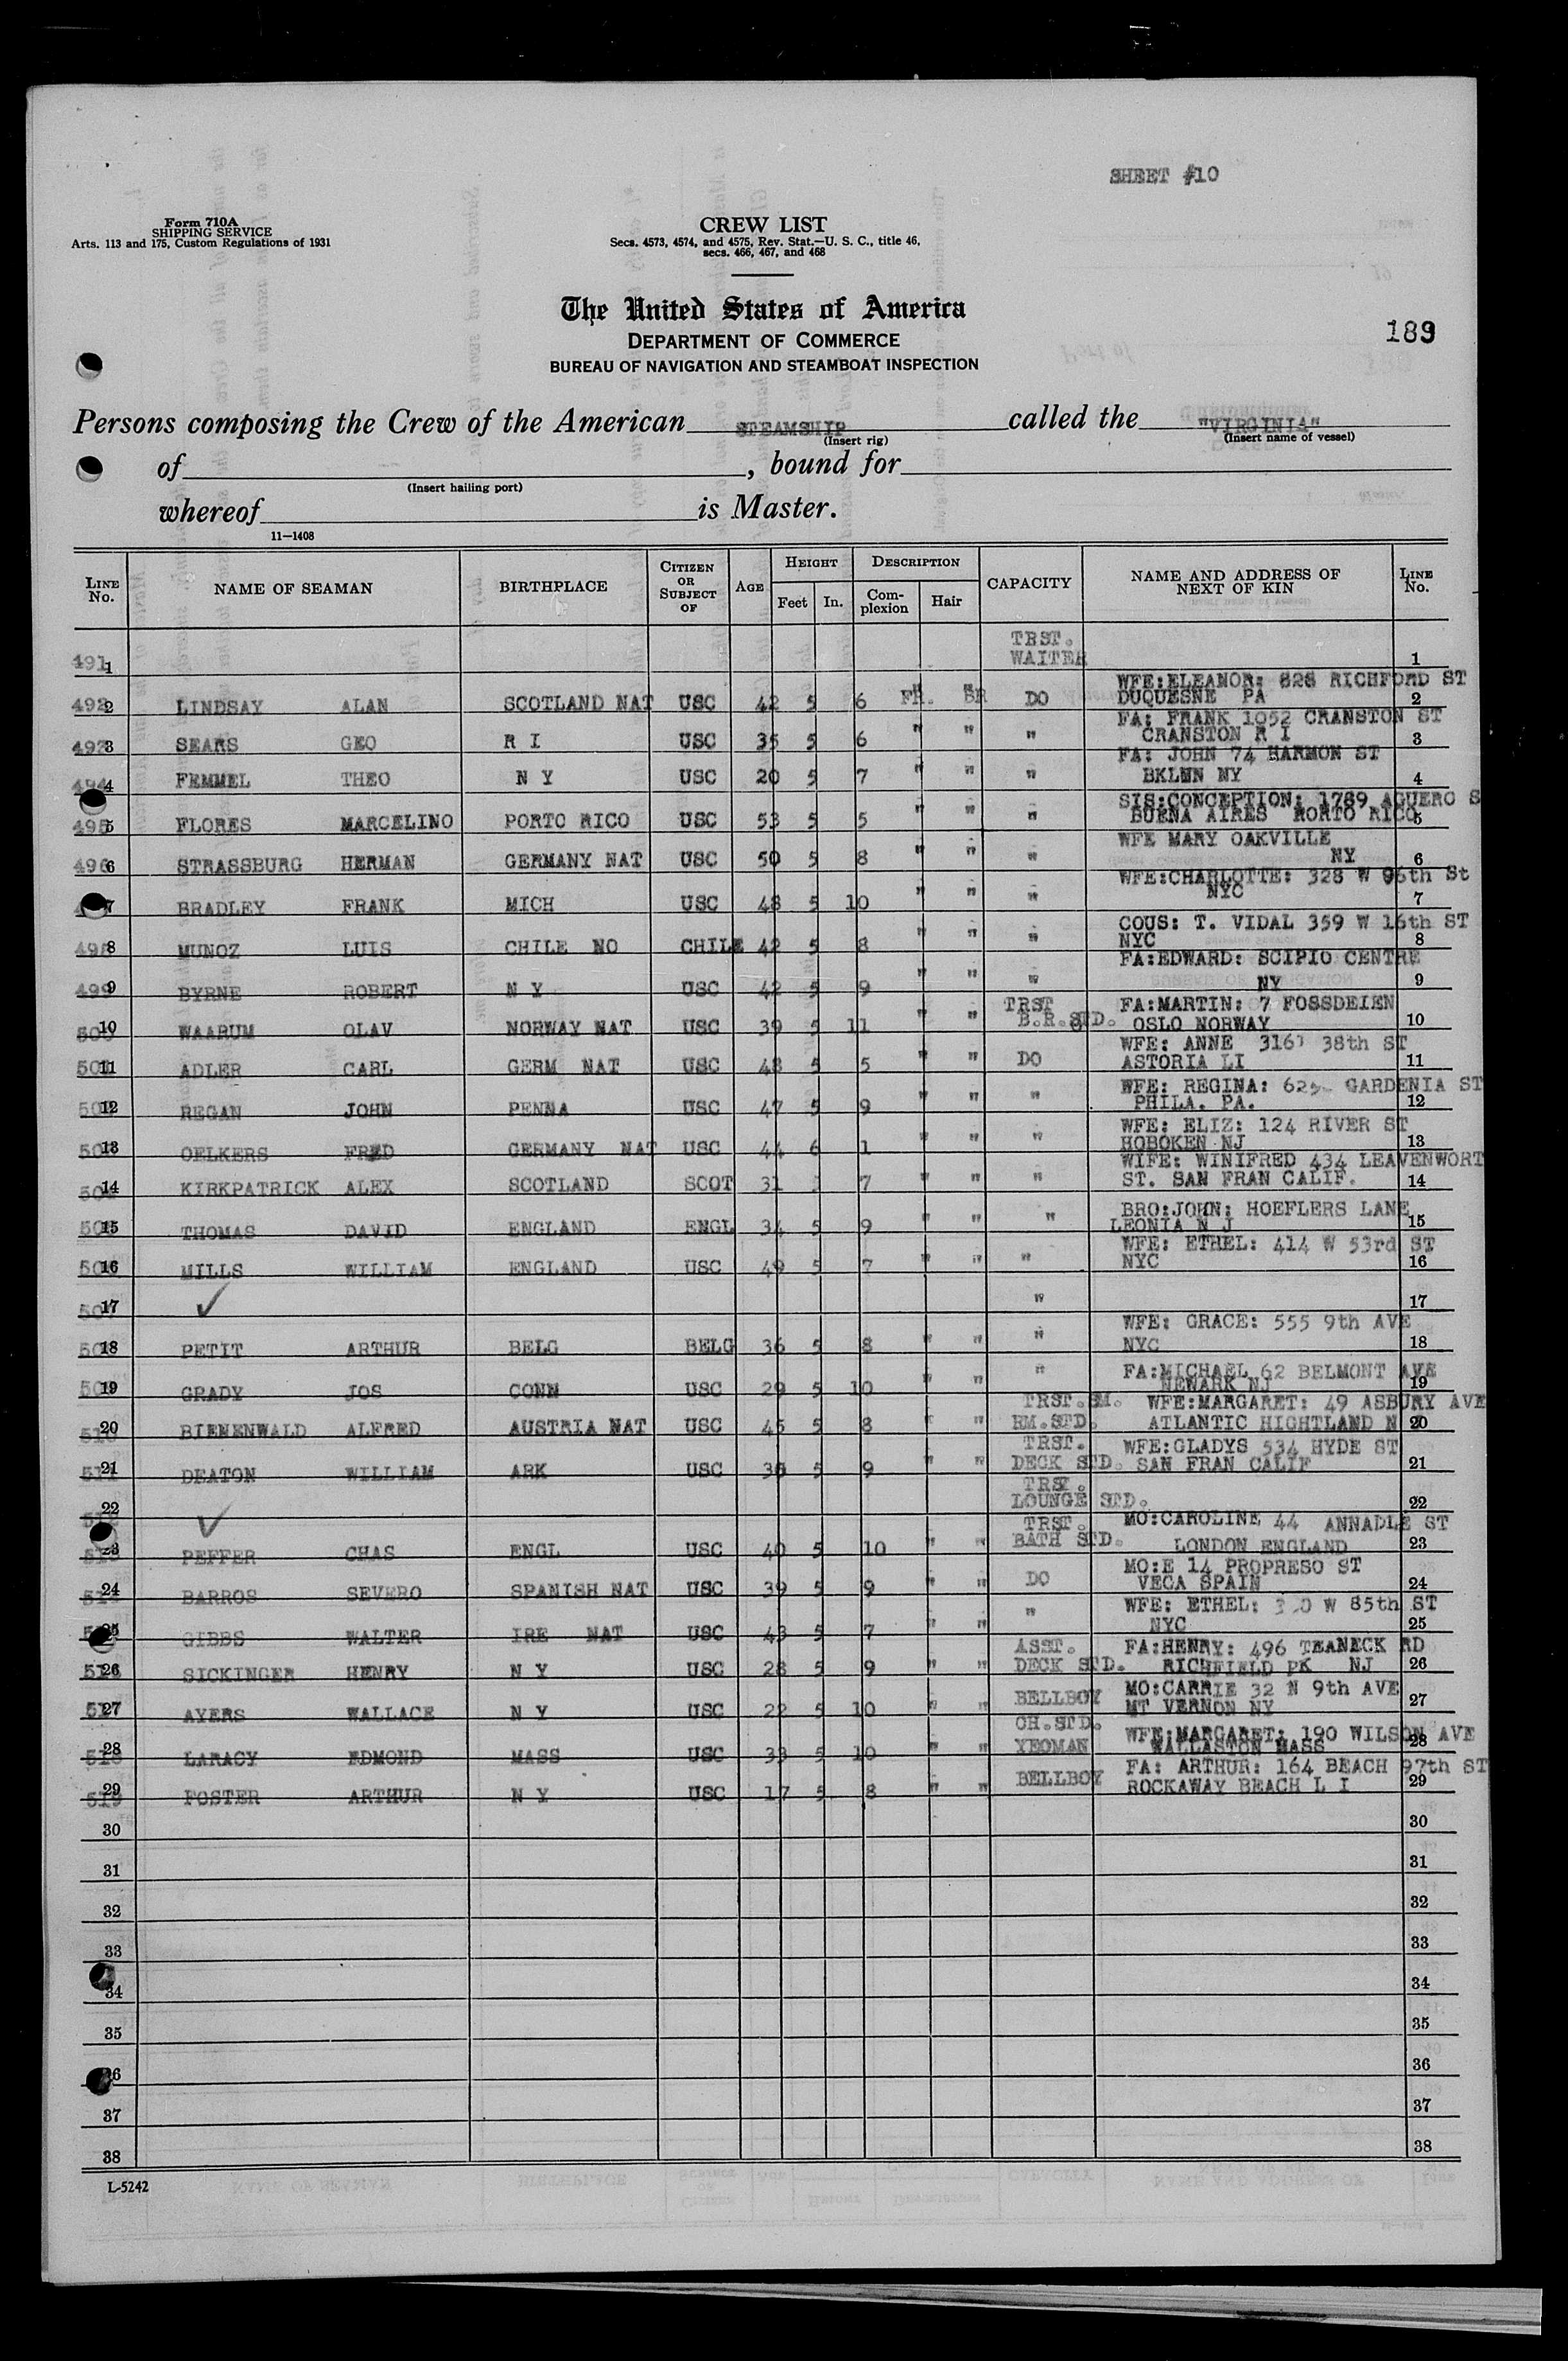 SHEET #10
Form 710A
SHIPPING SERVICE
Arts. 113 and 175, Custom Regulations of 1931
CREW LIST
Secs. 4573, 4574, and 4575, Rev. Stat.—U. S. C., title 46,
secs. 466, 467, and 468
The United States of America
DEPARTMENT OF COMMERCE
BUREAU OF NAVIGATION AND STEAMBOAT INSPECTION
189
Persons composing the Crew of the American STEAMSHIP called the "VIRGINIA"
(Insert rig) (Insert name of vessel)
of , bound for
(Insert hailing port)
whereof is Master.
11—1408
LINE No. NAME OF SEAMAN BIRTHPLACE CITIZEN OR SUBJECT OF AGE HEIGHT Feet In. DESCRIPTION Complexion Hair CAPACITY NAME AND ADDRESS OF NEXT OF KIN LINE No.
491 1 TRST. WAITER 1
492 2 LINDSAY ALAN SCOTLAND NAT USC 42 5 6 FR. BR DO WFE:ELEANOR: 828 RICHFORD ST DUQUESNE PA 2
493 3 SEARS GEO R I USC 35 5 6 " " " FA: FRANK 1052 CRANSTON ST CRANSTON R I 3
494 4 FEMMEL THEO N Y USC 20 5 7 " " " FA: JOHN 74 HARMON ST BKLNN NY 4
495 5 FLORES MARCELINO PORTO RICO USC 53 5 5 " " " SIS:CONCEPTION: 1789 AGUERO S BUENA AIRES PORTO RICO 5
496 6 STRASSBURG HERMAN GERMANY NAT USC 50 5 8 " " " WFE MARY OAKVILLE NY 6
7 BRADLEY FRANK MICH USC 48 5 10 " " " WFE:CHARLOTTE: 328 W 96th St NYC 7
498 8 MUNOZ LUIS CHILE NO CHILE 42 5 8 " " " COUS: T. VIDAL 359 W 16th ST NYC 8
499 9 BYRNE ROBERT N Y USC 42 5 9 " " " FA:EDWARD: SCIPIO CENTRE NY 9
500 10 WAARUM OLAV NORWAY NAT USC 39 5 11 " " TRST B.R.STD. FA:MARTIN: 7 FOSSDEIEN OSLO NORWAY 10
501 11 ADLER CARL GERM NAT USC 48 5 5 " " DO WFE: ANNE 38th ST ASTORIA LI 11
502 12 REGAN JOHN PENNA USC 47 5 9 " " " WFE: REGINA: GARDENIA ST PHILA. PA. 12
503 13 OELKERS FRED GERMANY NAT USC 44 6 1 " " " WFE: ELIZ: 124 RIVER ST HOBOKEN NJ 13
504 14 KIRKPATRICK ALEX SCOTLAND SCOT 31 7 " " " WIFE: WINIFRED 434 LEAVENWORT ST. SAN FRAN CALIF. 14
505 15 THOMAS DAVID ENGLAND ENGL 34 5 9 " " " BRO:JOHN: HOEFLERS LANE LEONIA N J 15
506 16 MILLS WILLIAM ENGLAND USC 49 5 7 " " " WFE: ETHEL: 414 W 53rd ST NYC 16
507 17 ✓ " 17
508 18 PETIT ARTHUR BELG BELG 36 5 8 " " " WFE: GRACE: 555 9th AVE NYC 18
509 19 GRADY JOS CONN USC 29 5 10 " " " FA:MICHAEL 62 BELMONT AVE NEWARK NJ 19
510 20 BIENENWALD ALFRED AUSTRIA NAT USC 45 5 8 " " TRST.SM. RM.STD. WFE:MARGARET: 49 ASBURY AVE ATLANTIC HIGHTLAND N J 20
511 21 DEATON WILLIAM ARK USC 36 5 9 " " TRST. DECK STD. WFE:GLADYS 534 HYDE ST SAN FRAN CALIF 21
512 22 ✓ TRST. LOUNGE STD. 22
513 23 PEFFER CHAS ENGL USC 40 5 10 " " TRST. BATH STD. MO:CAROLINE 44 ANNADLE ST LONDON ENGLAND 23
514 24 BARROS SEVERO SPANISH NAT USC 39 5 9 " " DO MO:E 14 PROPRESO ST VEGA SPAIN 24
25 GIBBS WALTER IRE NAT USC 43 5 7 " " " WFE: ETHEL: W 85th ST NYC 25
516 26 SICKINGER HENRY N Y USC 28 5 9 " " ASST. DECK STD. FA:HENRY: 496 TEANECK RD RICHFIELD PK NJ 26
517 27 AYERS WALLACE N Y USC 22 5 10 " " BELLBOY MO:CARRIE 32 N 9th AVE MT VERNON NY 27
518 28 LARACY EDMOND MASS USC 33 5 10 " " CH.STD. YEOMAN WFE:MARGARET: 190 WILSON AVE WALLASTON MASS 28
519 29 FOSTER ARTHUR N Y USC 17 5 8 " " BELLBOY FA: ARTHUR: 164 BEACH 97th ST ROCKAWAY BEACH L I 29
30 30
31 31
32 32
33 33
34 34
35 35
36 36
37 37
38 38
L-5242